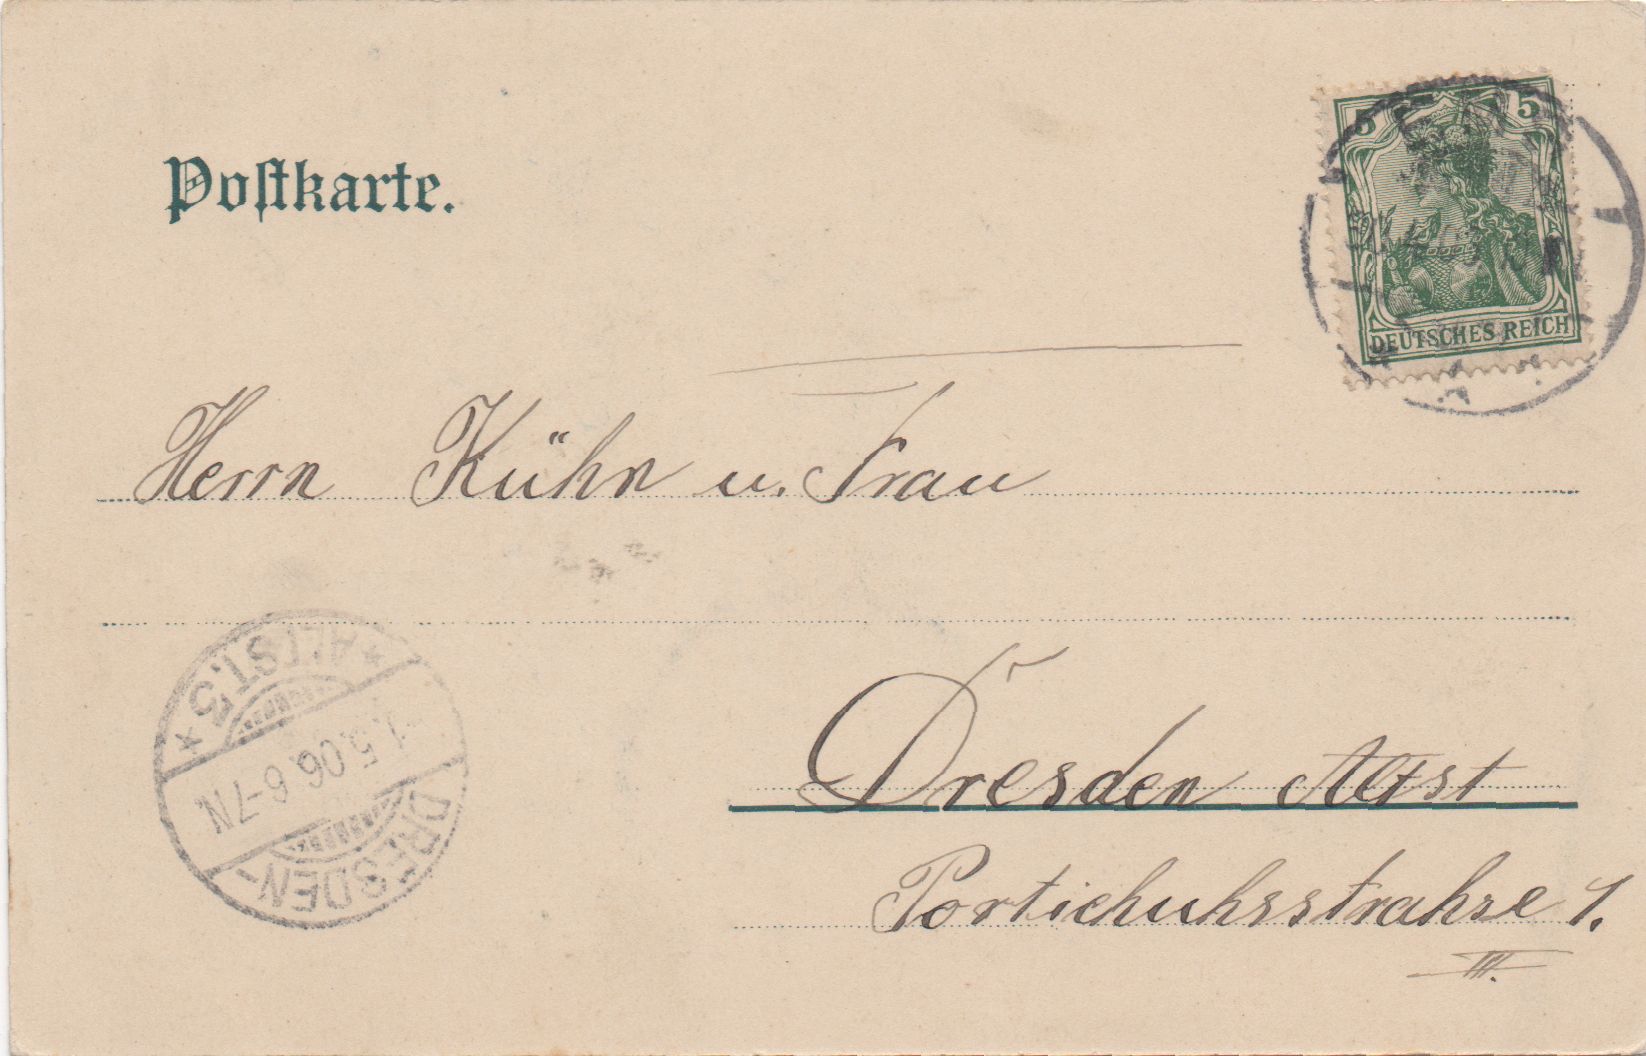 Postkarte.
5 5
DEUTSCHES REICH
Herrn Kühn u. Frau
Dresden Altst
Portichuhsstrahse 1.
III.
DRESDEN-
1.5.06. 6-7N
*ALTST.5*